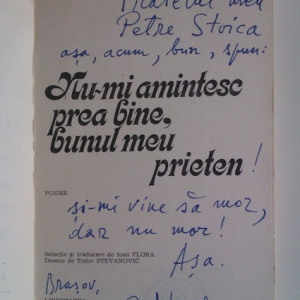 meu
Petre Stoica
așa, acum, bun, spun:
Nu-mi amintesc
prea bine,
bunul meu
prieten !
POEME
și-mi vine să mor,
dar nu mor!
Selecție și traducere de Ioan FLORA
Desene de Tudor STEVANOVIĆ
Așa.
Brașov,